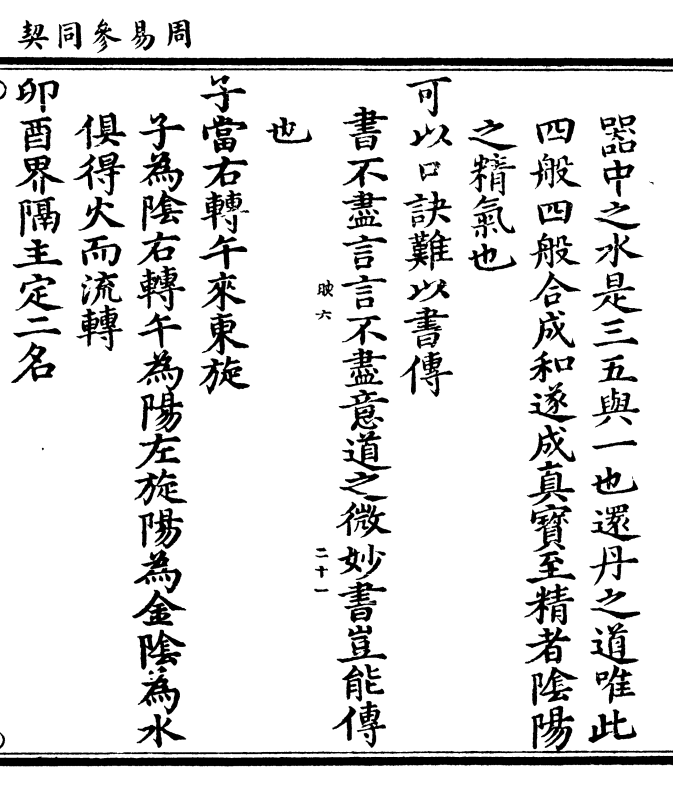 周易參同契
器中之水是三五與一也還丹之道唯此
四般四般合成和遂成真寶至精者陰陽
之精氣也
可以口訣難以書傳
書不盡言言不盡意道之微妙書豈能傳
映六
二十一
也
子當右轉午來東旋
子為陰右轉午為陽左旋陽為金陰為水
俱得火而流轉
卯酉界隔主定二名